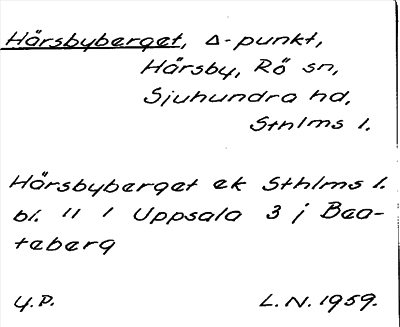 Hårsbyberget, Δ-punkt,
Hårsby, Rö sn,
Sjuhundra hd,
Sthlms l.
Hårsbyberget ek Sthlms l.
bl. 11 1 Uppsala 3 j Bea-
teberg
U.P. L.N. 1959.